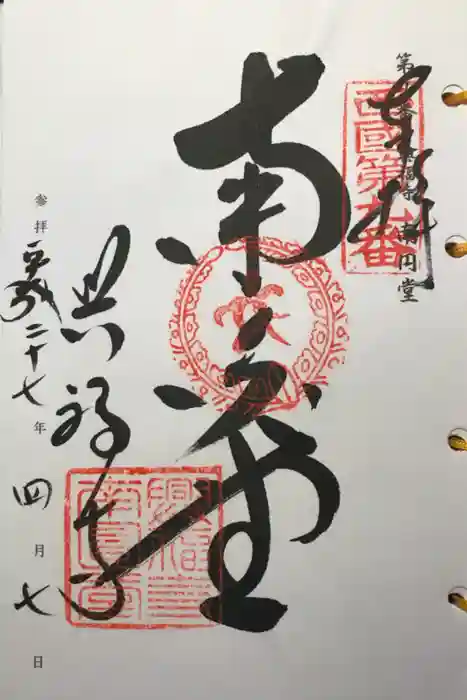 奉拝
第九番 興福寺 南円堂
西國第九番
南円堂
興福寺
参拝 平成二十七年四月七日